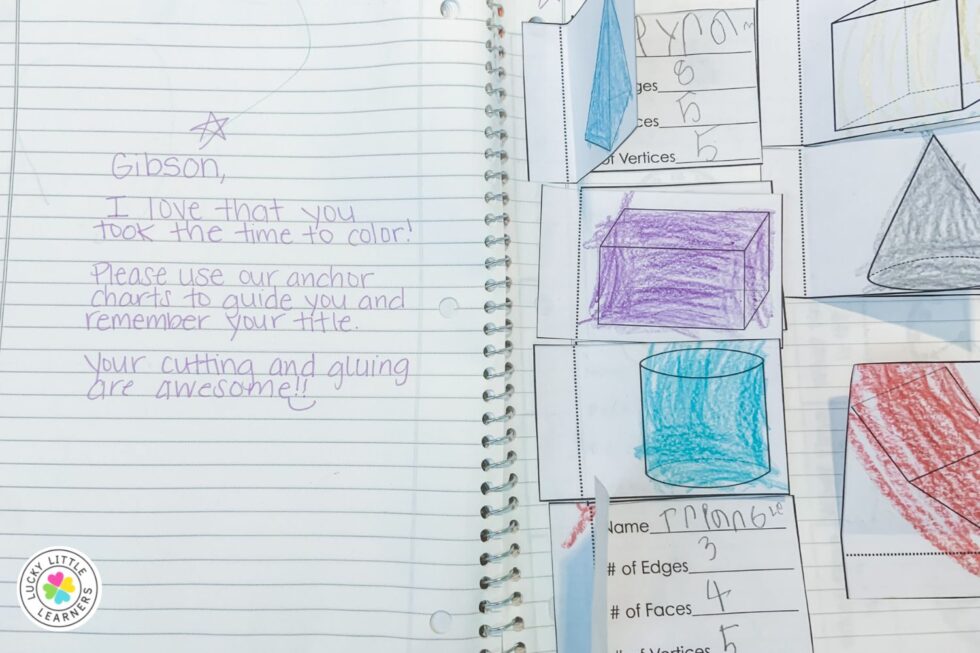 Gibson,
I love that you
took the time to color!
Please use our anchor
charts to guide you and
remember your title.
Your cutting and gluing
are awesome!!
ges 8
ces 5
of Vertices 5
Name
# of Edges 3
# of Faces 4
# of Vertices 5
LUCKY LITTLE
LEARNERS